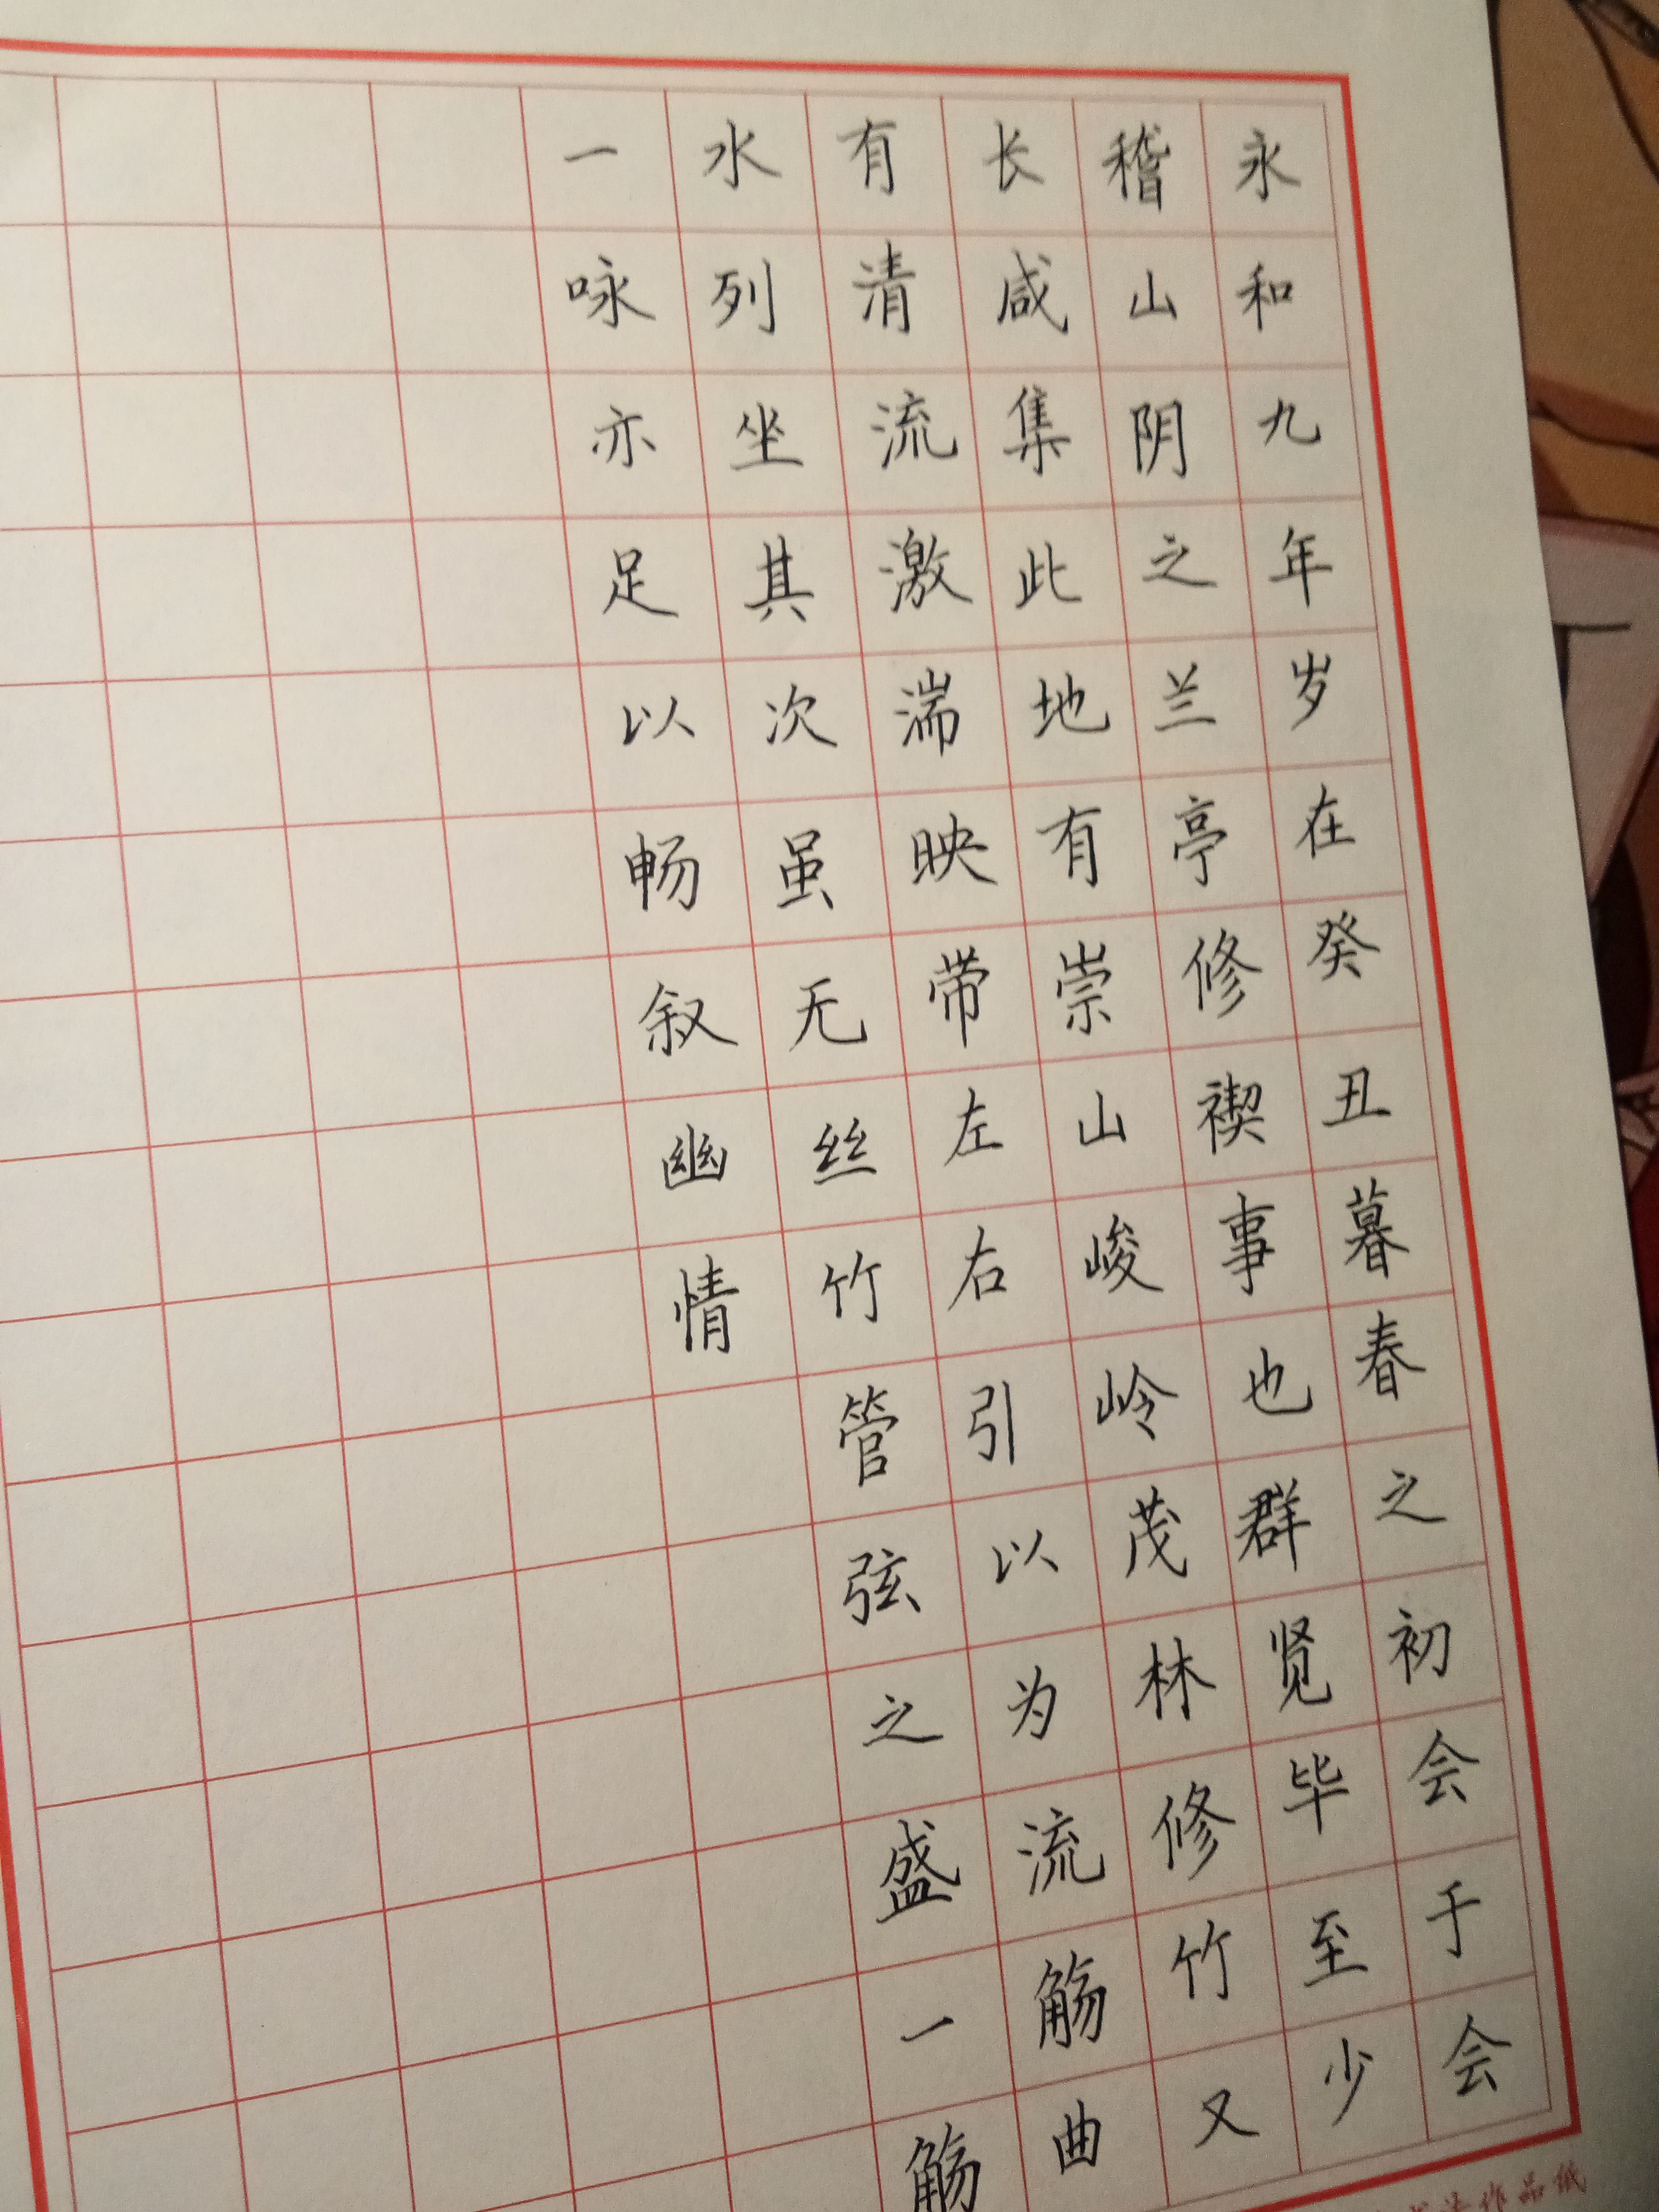 永和九年岁在癸丑暮春之初会于会
稽山阴之兰亭修禊事也群贤毕至少
长咸集此地有崇山峻岭茂林修竹又
有清流激湍映带左右引以为流觞曲
水列坐其次虽无丝竹管弦之盛一觞
一咏亦足以畅叙幽情
作品纸